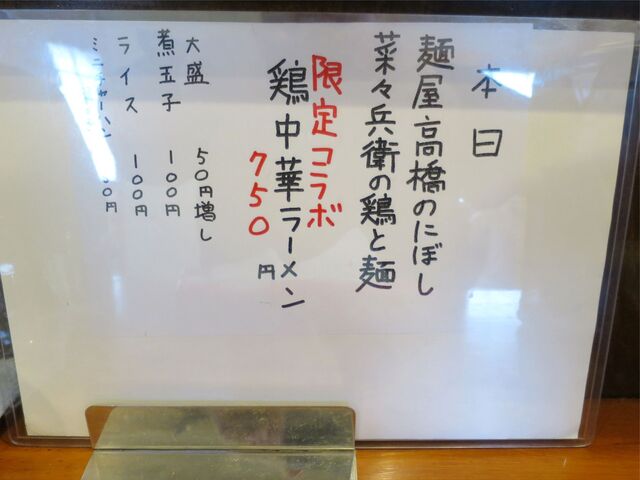 本日
麺屋高橋のにぼし
菜々兵衛の鶏と麺
限定コラボ
鶏中華ラーメン
750円
大盛 50円増し
煮玉子 100円
ライス 100円
ミニチャーハン